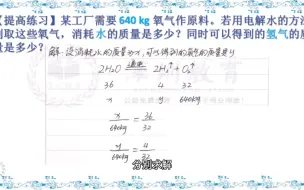 【提高练习】某工厂需要 640 kg 氧气作原料。若用电解水的方法
制取这些氧气，消耗水的质量是多少？同时可以得到的氢气的质
量是多少？
解：设消耗水的质量为x，可以得到的氢气的质量是y
2H₂O 通电 2H₂↑ + O₂↑
36 4 32
x y 640kg
x/640kg = 36/32
y/640kg = 4/32
分别求解